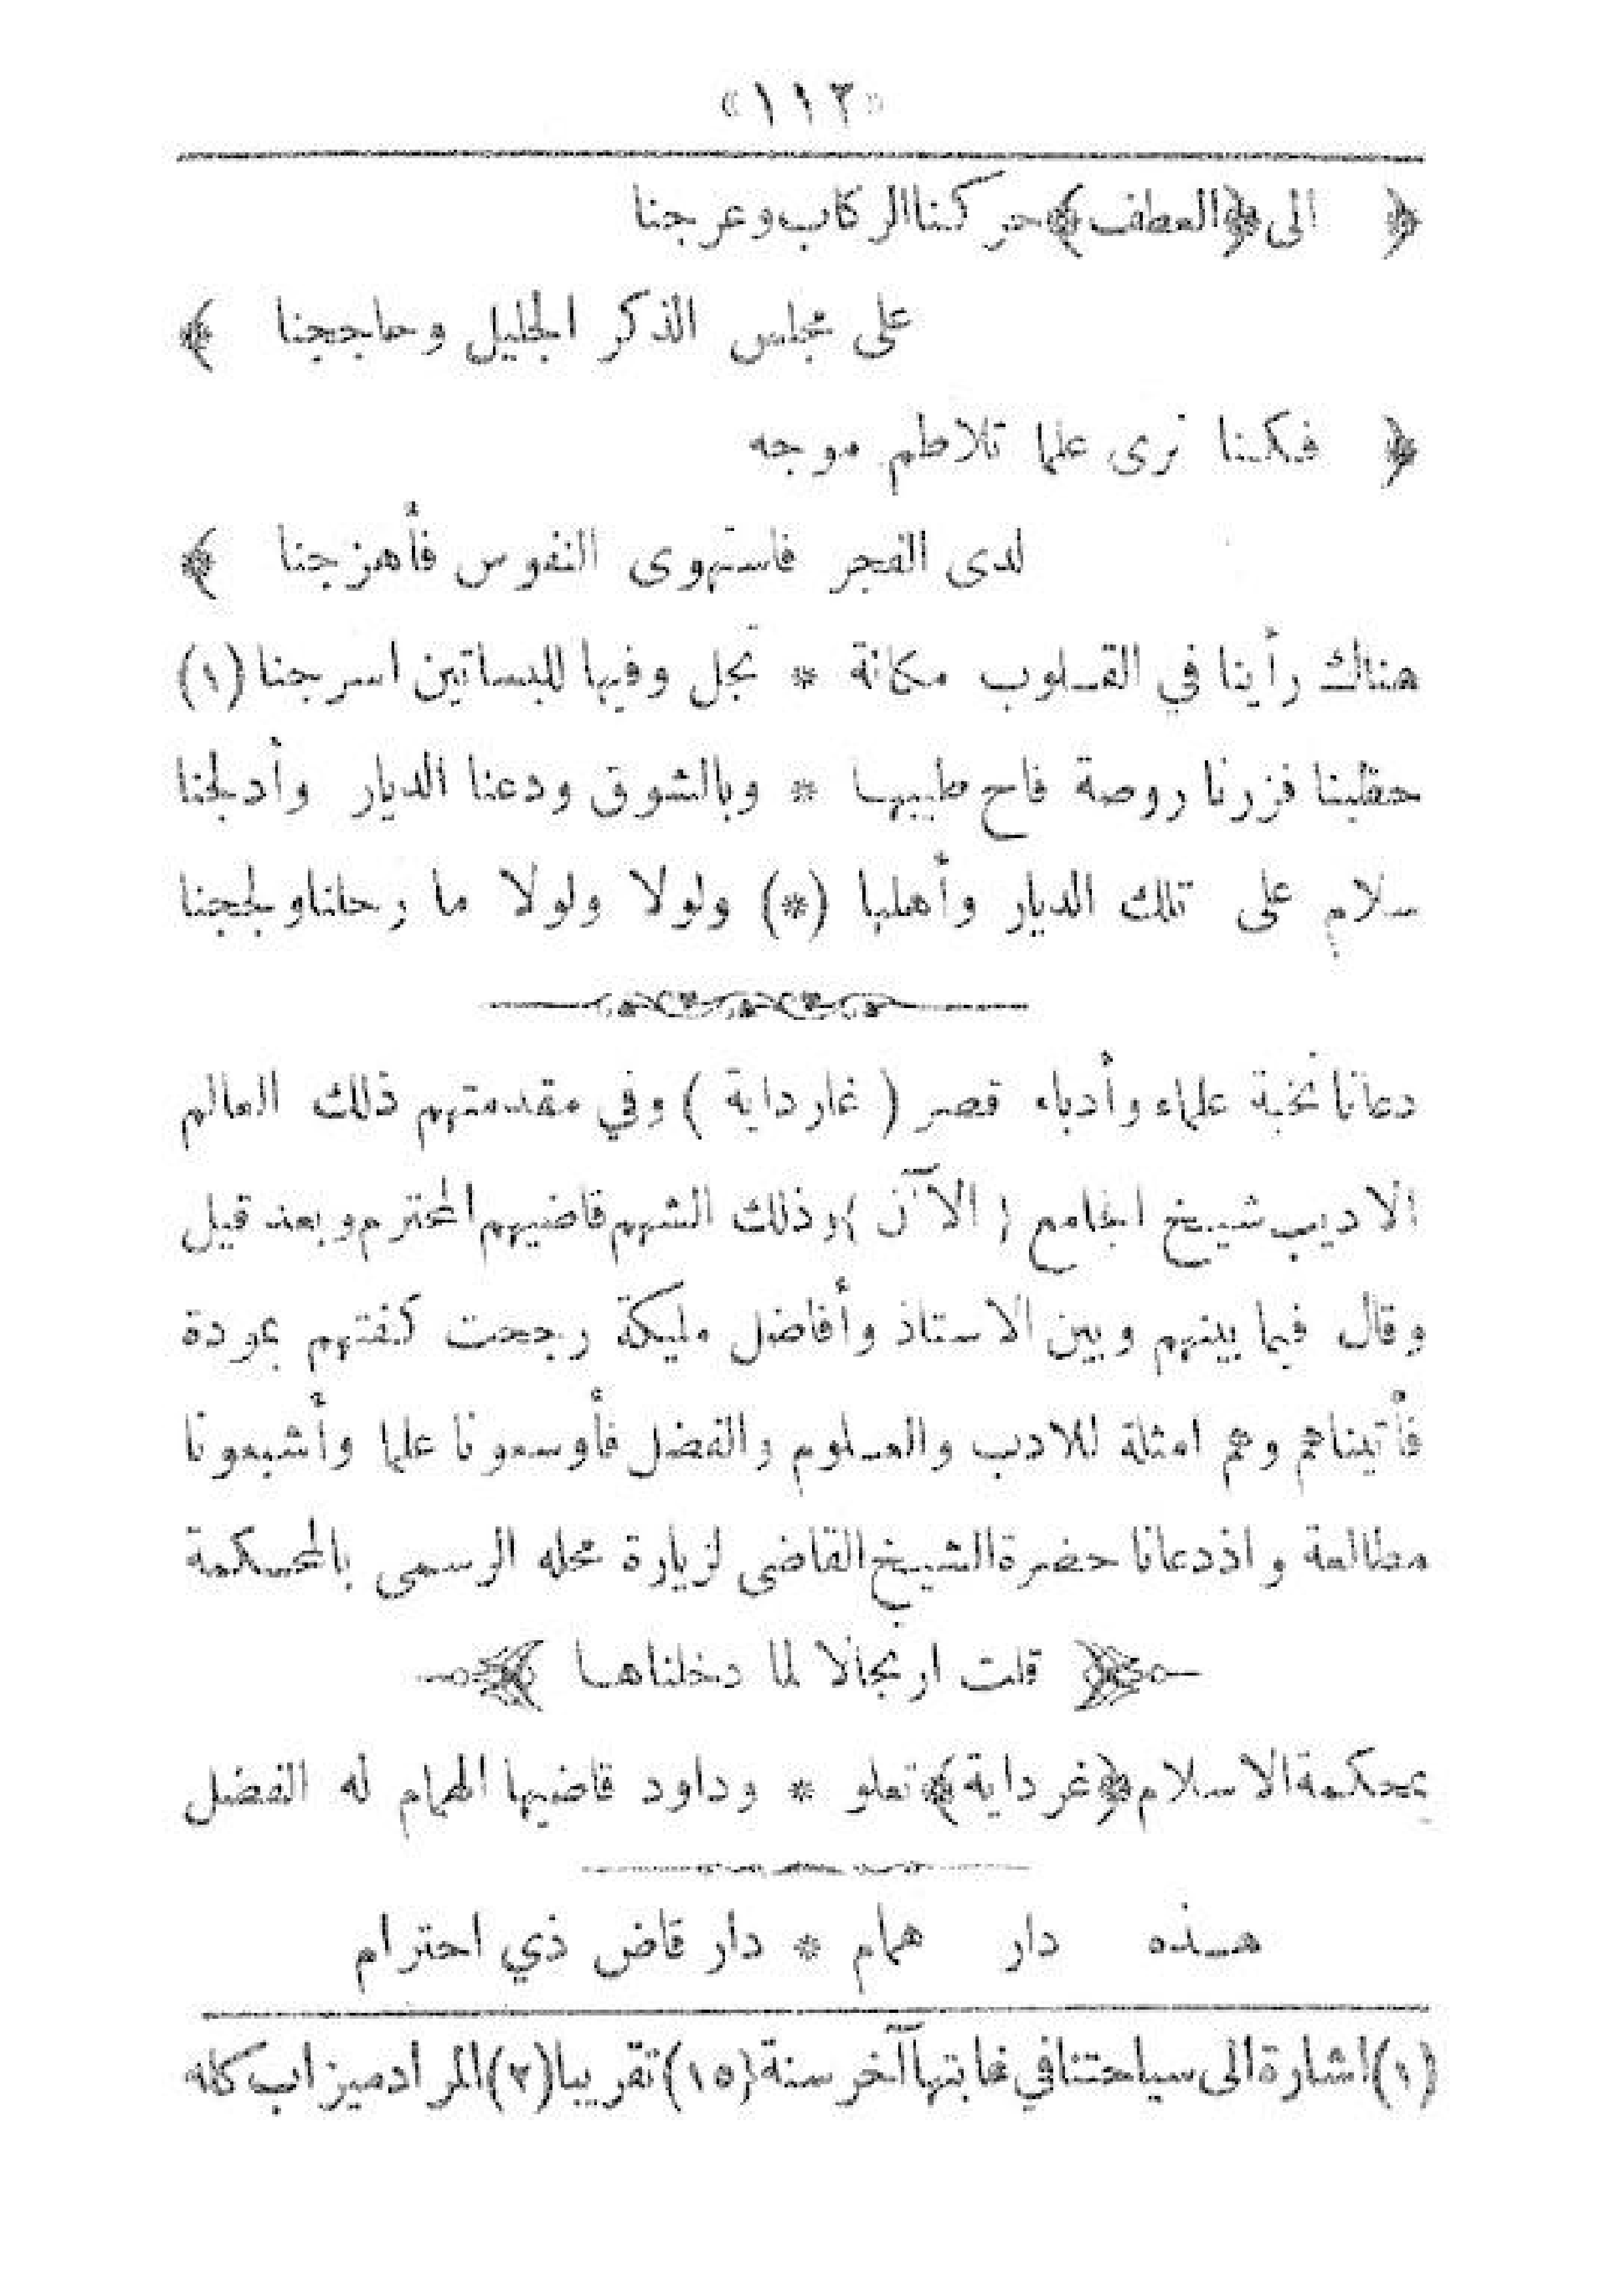 «١١٢»
﴿ الى ﴿العطف﴾ حركنا الركاب وعرجنا
على مجلس الذكر الجليل وحاججنا ﴾
﴿ فكنا نرى علما تلاطم موجه
لدى الفجر فاستهوى النفوس فأهزجنا ﴾
هناك رأينا في القلوب مكانة * تجل وفيها للبساتين اسرجنا (١)
حظينا فزرنا روضة فاح طيبها * وبالشوق ودعنا الديار وأدلجنا
سلام على تلك الديار وأهلها (*) ولولا ولولا ما رحلنا ولججنا
دعانا نخبة علماء وأدباء قصر ( غارداية ) وفي مقدمتهم ذلك العالم
الاديب شيخ الجامع ( الآن ) وذلك الشهم قاضيهم المحترم وبعد قيل
وقال فيما بينهم وبين الاستاذ وأفاضل مليكة رجحت كفتهم بمودة
فأتيناهم وهم امثلة للادب والعلوم والفضل فأوسعونا علما وأشبعونا
مطالعة واذ دعانا حضرة الشيخ القاضى لزيارة محله الرسمى بالمحكمة
﴿ قلت ارتجالا لما دخلناها ﴾
بمحكمة الاسلام ﴿غرداية﴾ تعلو * وداود قاضيها الهمام له الفضل
هذه دار همام * دار قاض ذي احترام
(١) اشارة الى سياحتنا في غابتها آخر سنة (١٥) تقريبا (٢) المراد ميزاب كله